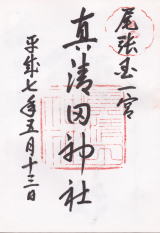 尾張國一宮
真清田神社
平成七年五月十三日